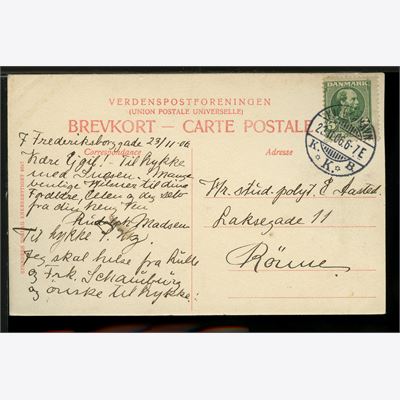 VERDENSPOSTFORENINGEN
(UNION POSTALE UNIVERSELLE)
BREVKORT – CARTE POSTALE
Correspondance
Adresse
DANMARK
KJØBENHAVN
23.11.06. 6-7 E
K. K. B.
Frederiksborggade 23/11-06
Kære Ejgil! Til lykke
med Dagen. Mange
venlige Hilsner til dine
Forældre, Eleten og dig selv
fra din hengivne
Madsen
Til lykke
Jeg skal hilse fra
og Frk. Schaumburg
og ønske til lykke!
Hr. stud. polyt. E.
Laksegade 11
Rønne.